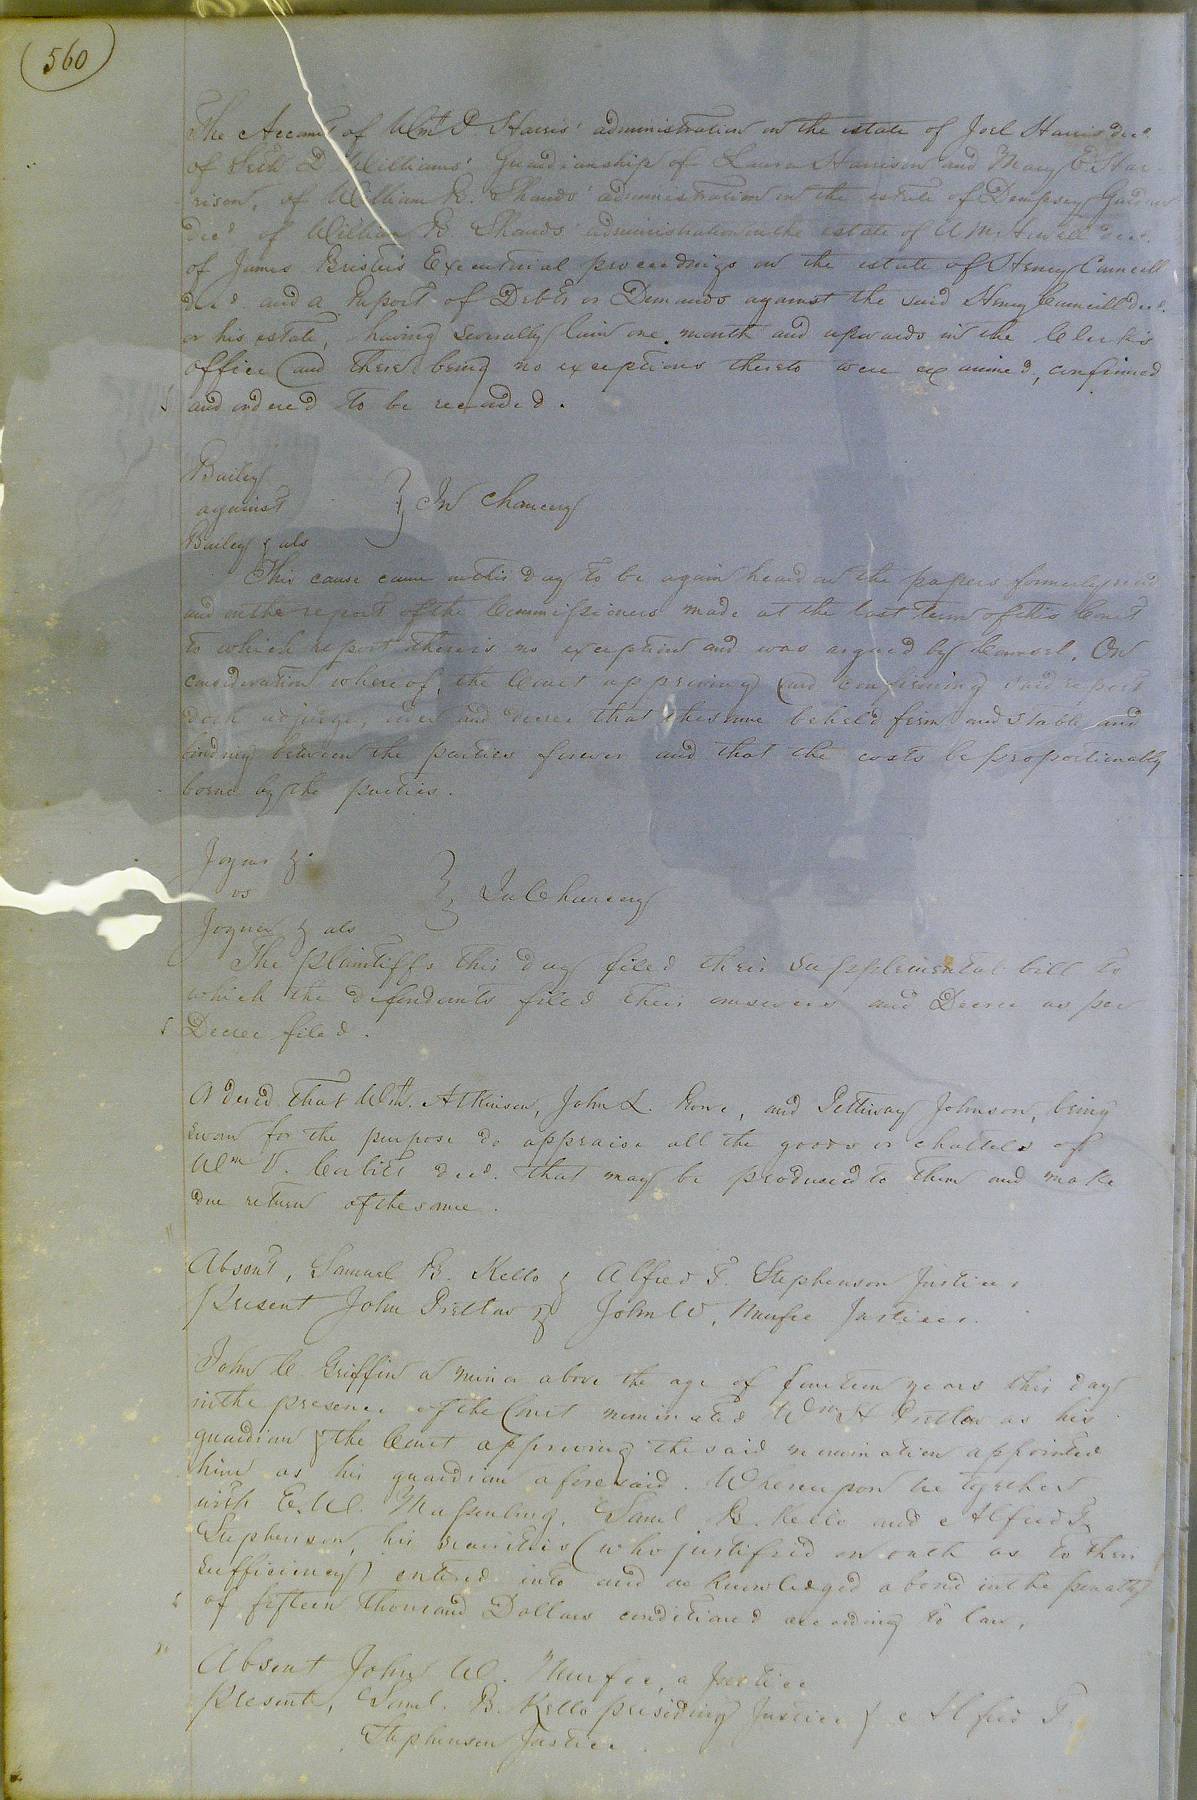 560
The Account of Wm. P. Harris' administration on the estate of Joel Harris decd.
of Seth D Williams' Guardianship of Laura Harrison and Mary E. Har-
rison, of William B. Shands' administration on the estate of Dempsey
decd. of William B. Shands' administration on the estate of decd.
of James Bristers Executorial proceedings on the estate of Henry Councill
decd. and a Report of Debts or Demands against the said Henry Councill decd.
or his estate, having severally lain one month and upwards in the Clerk's
office and there being no exceptions thereto were examined, confirmed
and ordered to be recorded.
Bailey
against } In Chancery
Bailey & als
This cause came on this day to be again heard on the papers formerly read
and on the report of the Commissioners made at the last term of this Court
to which report there is no exception and was argued by Counsel. On
consideration whereof, the Court approving and confirming said report
doth adjudge, order and decree that the same be held firm and stable and
binding between the parties forever and that the costs be proportionably
borne by the parties.
Joyner &
vs } In Chancery
Joyner & als
The plaintiffs this day filed their supplemental bill to
which the defendants filed their answers and Decree as per
Decree filed.
Ordered that Wm. Atkinson, John L. Rowe, and Pettway Johnson, being
sworn for the purpose do appraise all the goods or chattels of
Wm V. Corbitt decd. that may be produced to them and make
due return of the same.
Absent, Samuel B. Kello & Alfred T. Stephenson Justices
Present John Pretlow & John W. Murfee Justices.
John C. Griffin a minor above the age of fourteen years this day
in the presence of the Court nominated Wm H Pretlow as his
guardian & the Court approving the said nomination appointed
him as his guardian aforesaid. Whereupon he together
with E. W. Massenburg, Saml B. Kello and Alfred T.
Stephenson, his securities (who justified on oath as to their
sufficiency) entered into and acknowledged a bond in the penalty
of fifteen thousand Dollars conditioned according to law.
Absent John W. Murfee, a Justice
Present, Saml. B. Kello presiding Justice & Alfred T.
Stephenson Justice.